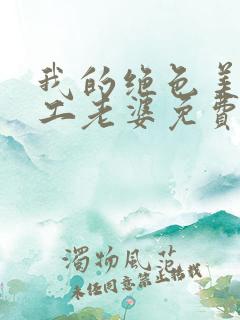 我的绝色美
工老婆免费
浊物风范
未经同意禁止搭载